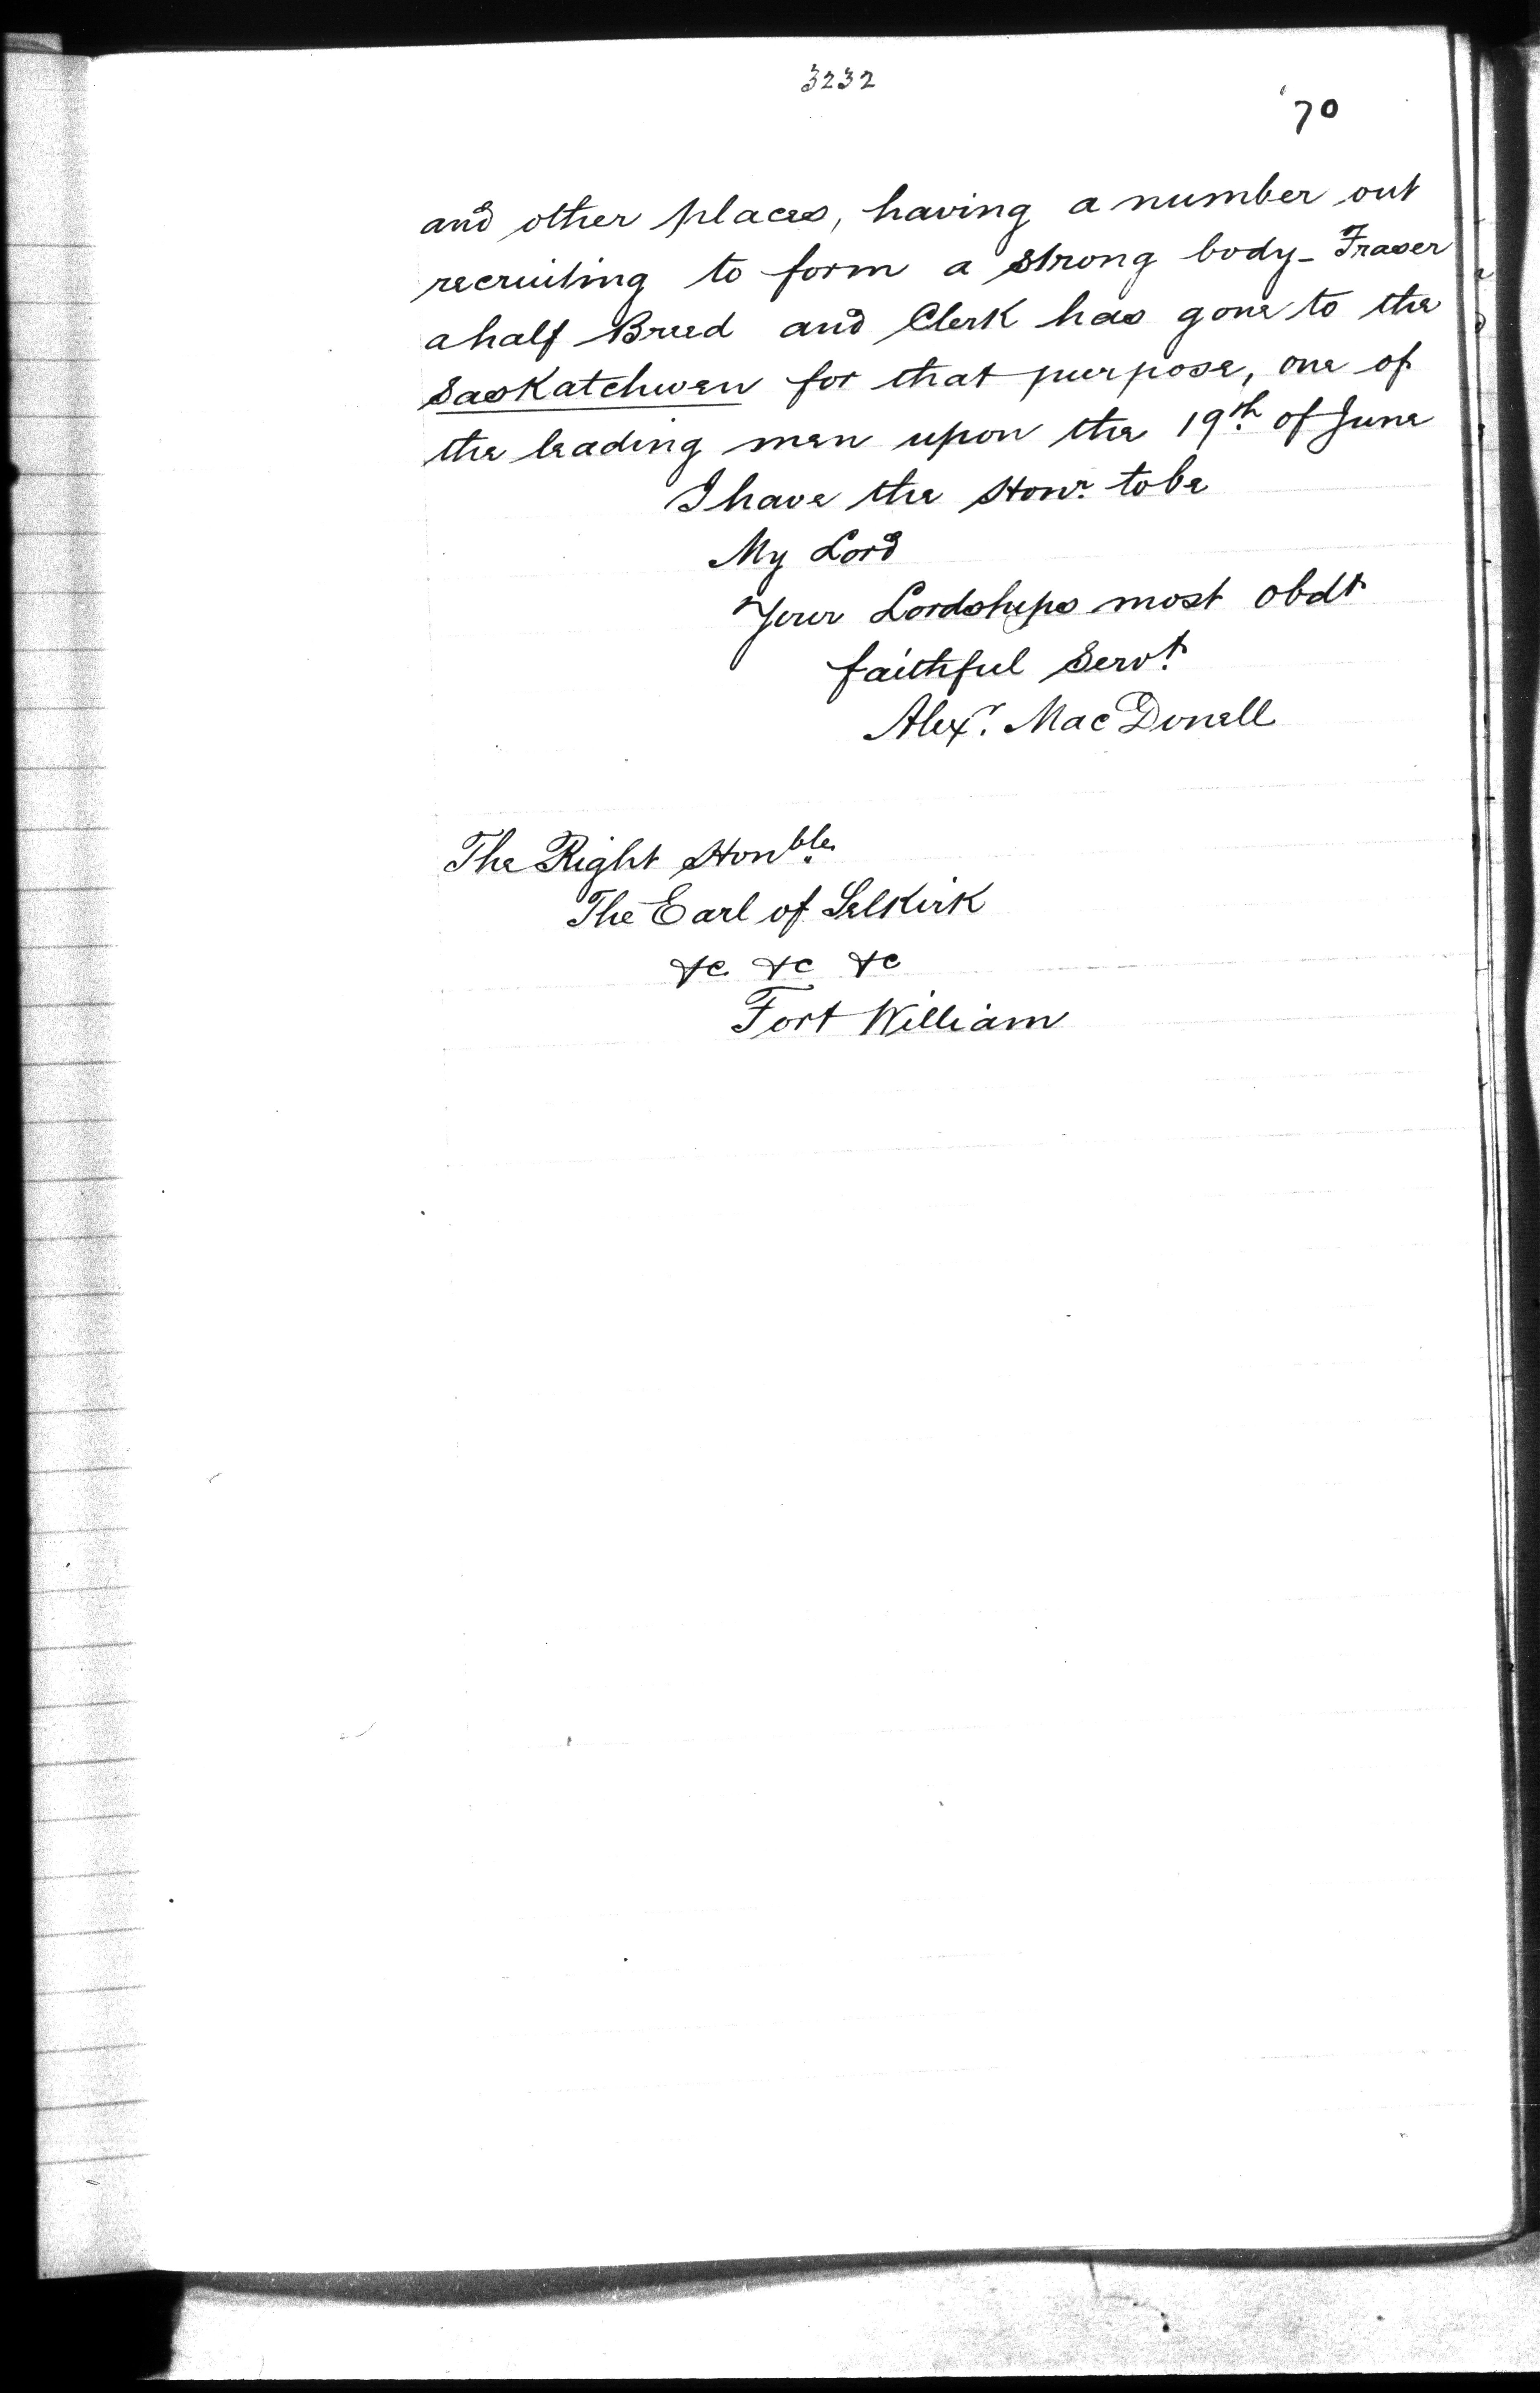 3232
70
and other places, having a number out
recruiting to form a strong body - Fraser
a half Breed and Clerk has gone to the
Saskatchwen for that purpose, one of
the leading men upon the 19th. of June
I have the Honr. to be
My Lord
Your Lordships most obdt
faithful Servt.
Alexr. MacDonell
The Right Honble.
The Earl of Selkirk
&c. &c &c
Fort William